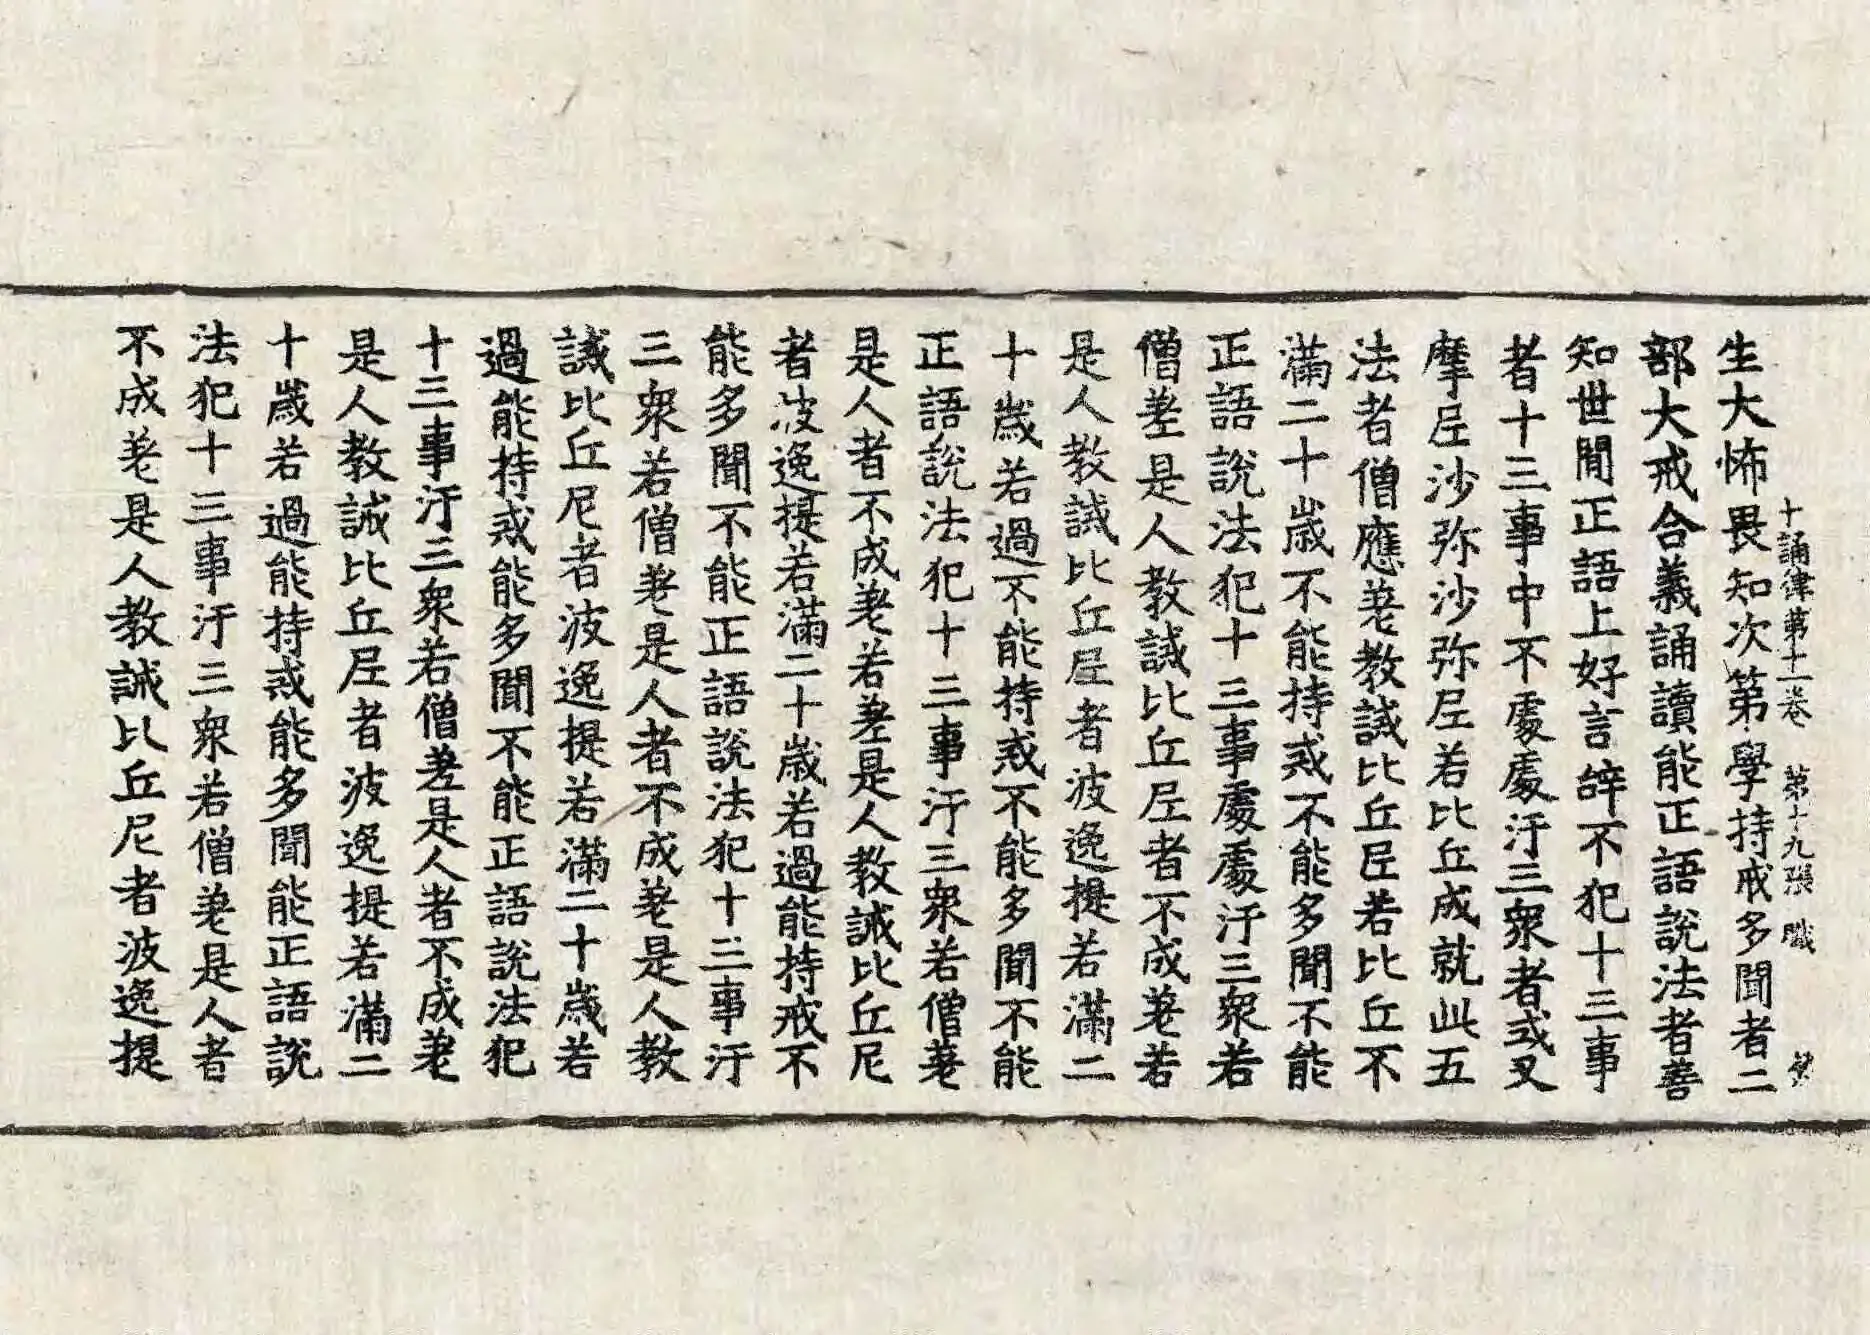 十誦律第十一卷 第十九張 職
生大怖畏知次第學持戒多聞者二
部大戒合義誦讀能正語說法者善
知世閒正語上好言辝不犯十三事
者十三事中不處處汙三衆者或叉
摩尼沙弥沙弥尼若比丘成就此五
法者僧應差教誡比丘尼若比丘不
滿二十歲不能持戒不能多聞不能
正語說法犯十三事處處汙三衆若
僧差是人教誡比丘尼者不成差若
是人教誡比丘尼者波逸提若滿二
十歲若過不能持戒不能多聞不能
正語說法犯十三事汙三衆若僧差
是人者不成差若差是人教誡比丘尼
者波逸提若滿二十歲若過能持戒不
能多聞不能正語說法犯十三事汙
三衆若僧差是人者不成差是人教
誡比丘尼者波逸提若滿二十歲若
過能持戒能多聞不能正語說法犯
十三事汙三衆若僧差是人者不成差
是人教誡比丘尼者波逸提若滿二
十歲若過能持戒能多聞能正語說
法犯十三事汙三衆若僧差是人者
不成差是人教誡比丘尼者波逸提